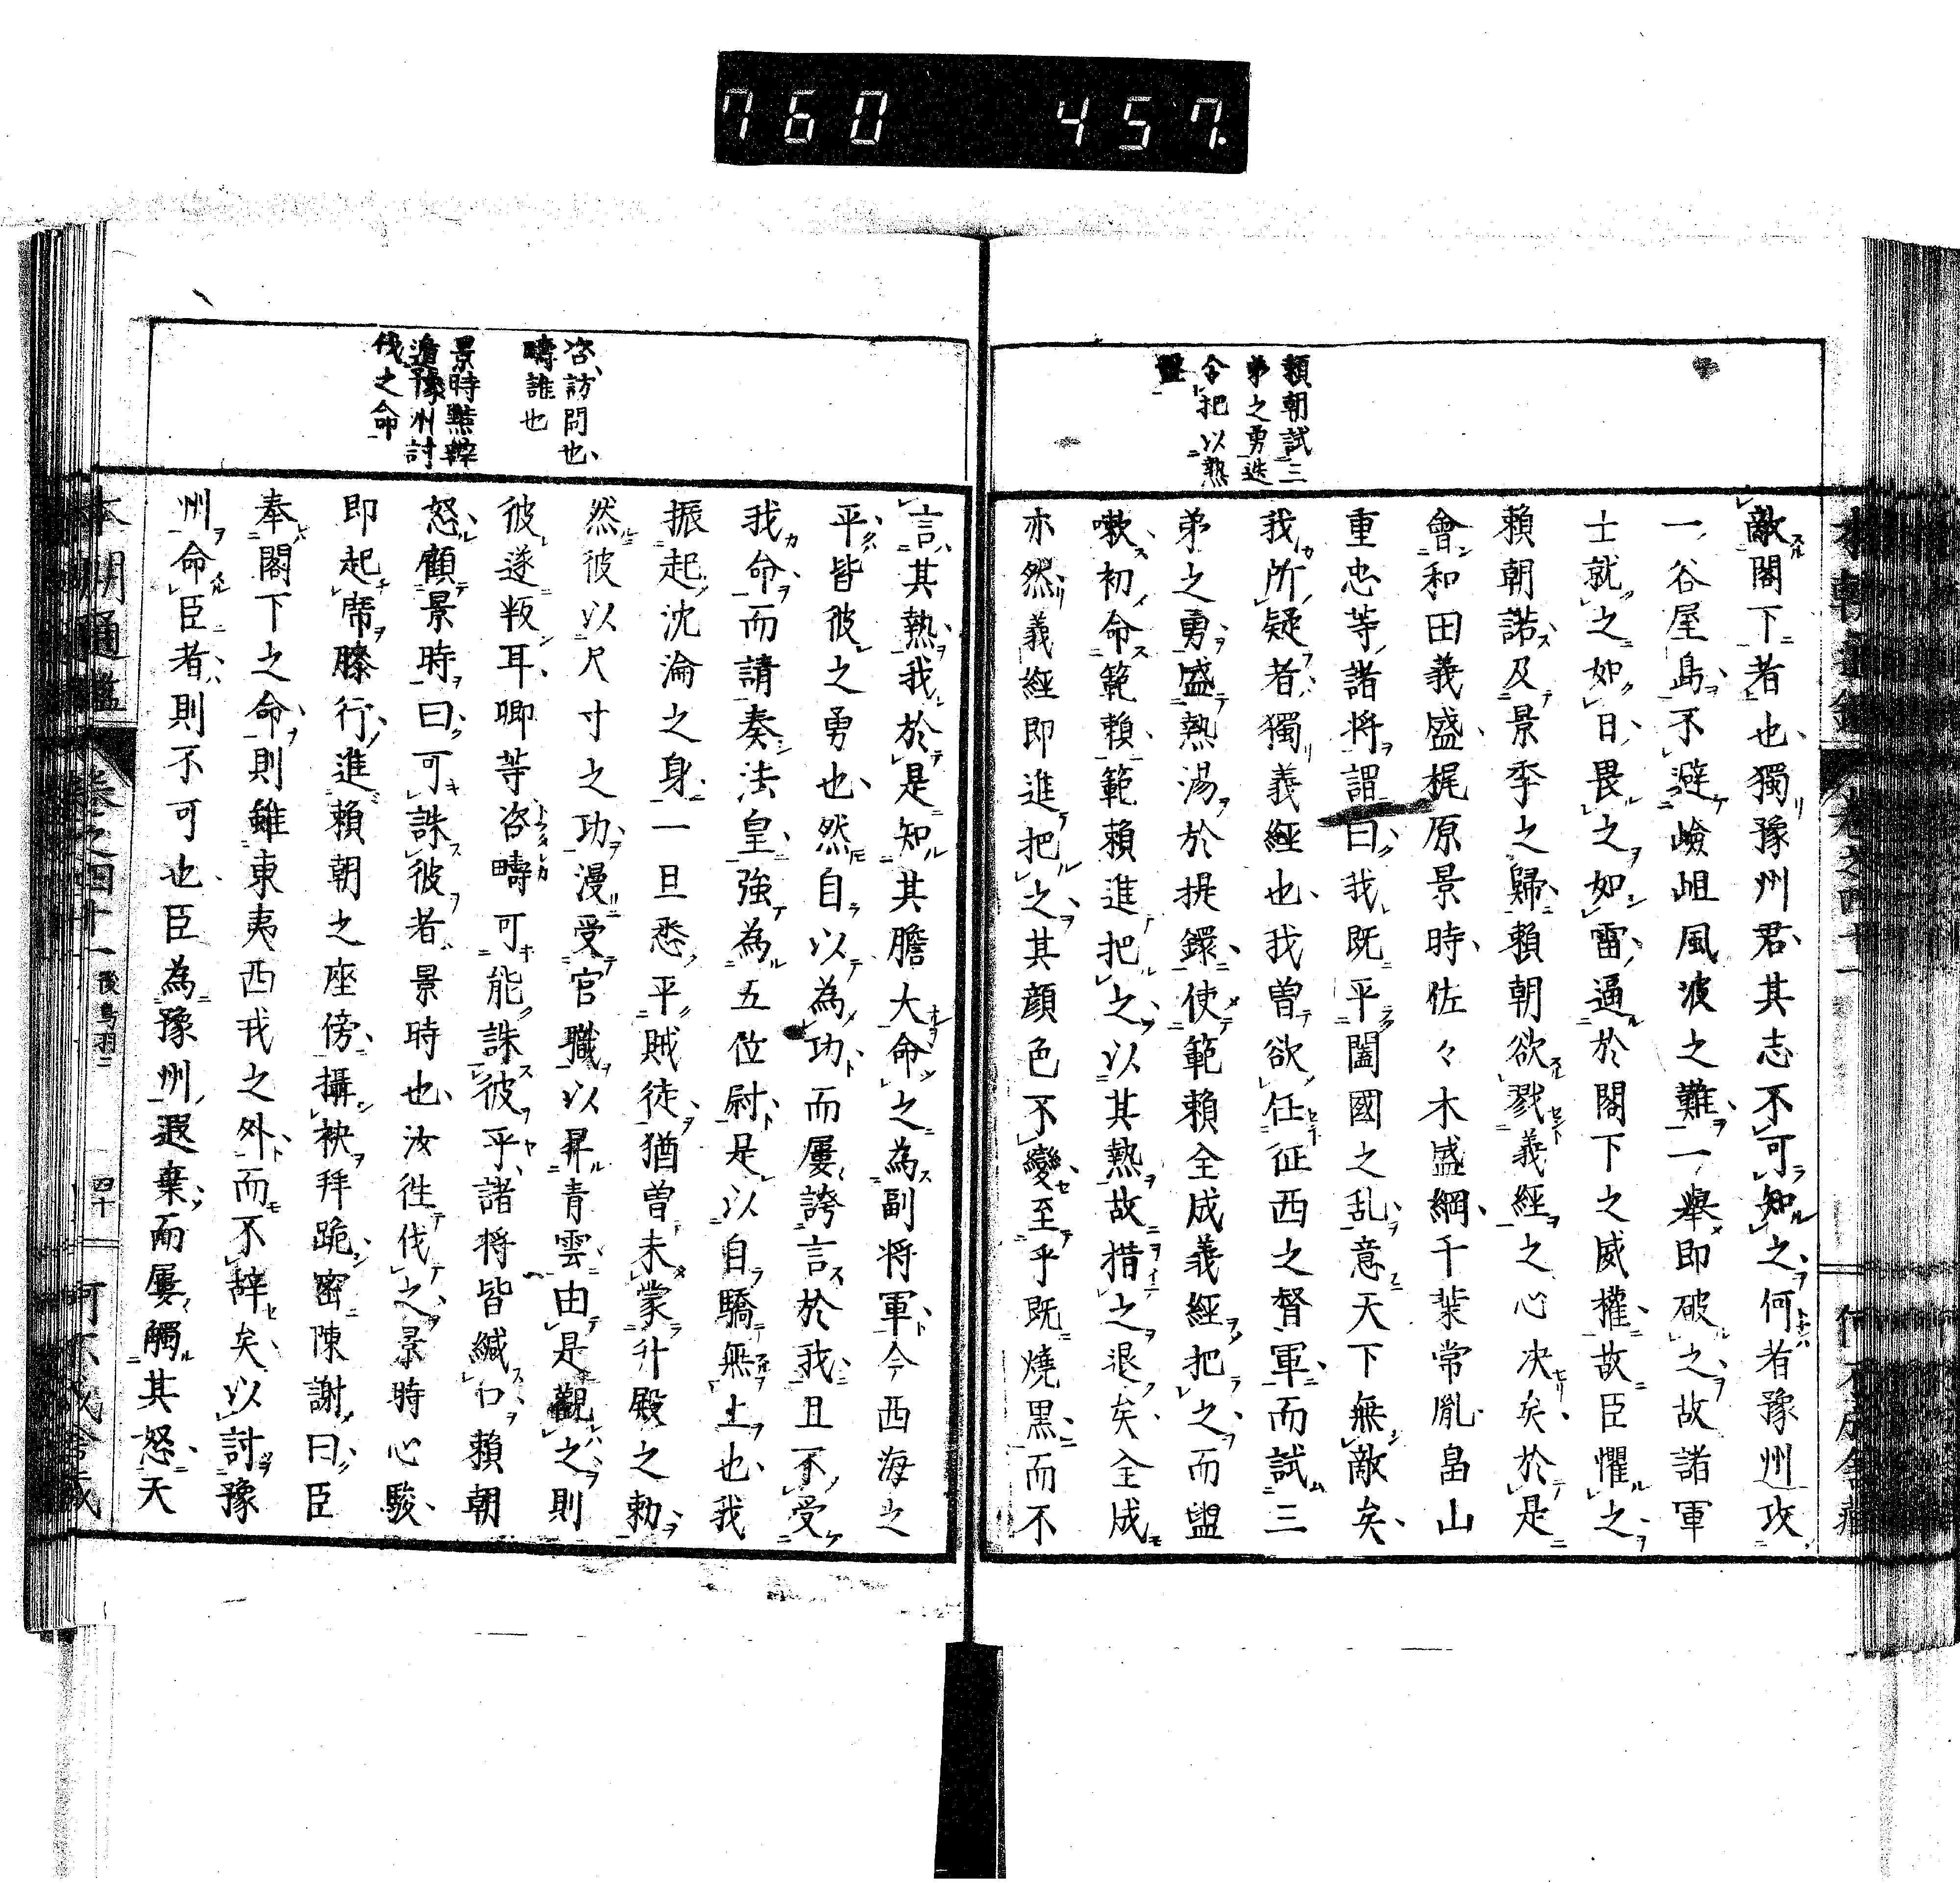 760 457.
頼朝試三
弟之勇迭
令把以熱
盥
敵閣下者也獨豫州君其志不可知之何者豫州攻
一谷屋島不避嶮岨風波之難一擧即破之故諸軍
士就之如日畏之如雷逼於閣下之威權故臣懼之
頼朝諾及景季之歸頼朝欲戮義經之心决矣於是
會和田義盛梶原景時佐々木盛綱千葉常胤畠山
重忠等諸将謂曰我既平闔國之乱意天下無敵矣
我所疑者獨義經也我曽欲任征西之督軍而試三
弟之勇盛熱湯於提鐶使範頼全成義經把之而盥
嗽初命範頼範頼進把之以其熱故措之退矣全成
亦然義經即進把之其顔色不變至乎既燒黒而不
咨訪問也
疇誰也
景時黠辭
遁豫州討
伐之命
言其熱我於是知其膽大命之為副将軍今西海之
平皆彼之勇也然自以為功而屢誇言於我且不受
我命而請奏法皇強為五位尉是以自驕無上也我
振起沈淪之身一旦悉平賊徒猶曽未蒙升殿之勅
然彼以尺寸之功漫受官職以昇青雲由是觀之則
彼遂叛耳卿等咨疇可能誅彼乎諸将皆緘口頼朝
怒顧景時曰可誅彼者景時也汝徃伐之景時心駭
即起席膝行進頼朝之座傍攝袂拜跪密陳謝曰臣
奉閣下之命則雖東夷西戎之外而不辞矣以討豫
州命臣者則不可也臣為豫州遐棄而屢觸其怒天
本朝通鑑 卷之四十一 後鳥羽二 四十